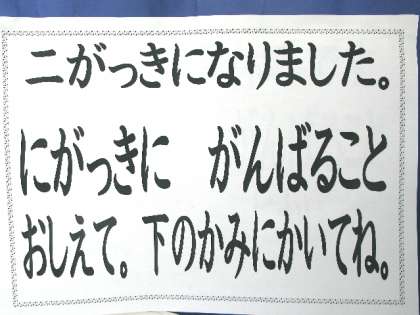 二がっきになりました。
にがっきに　がんばること
おしえて。下のかみにかいてね。